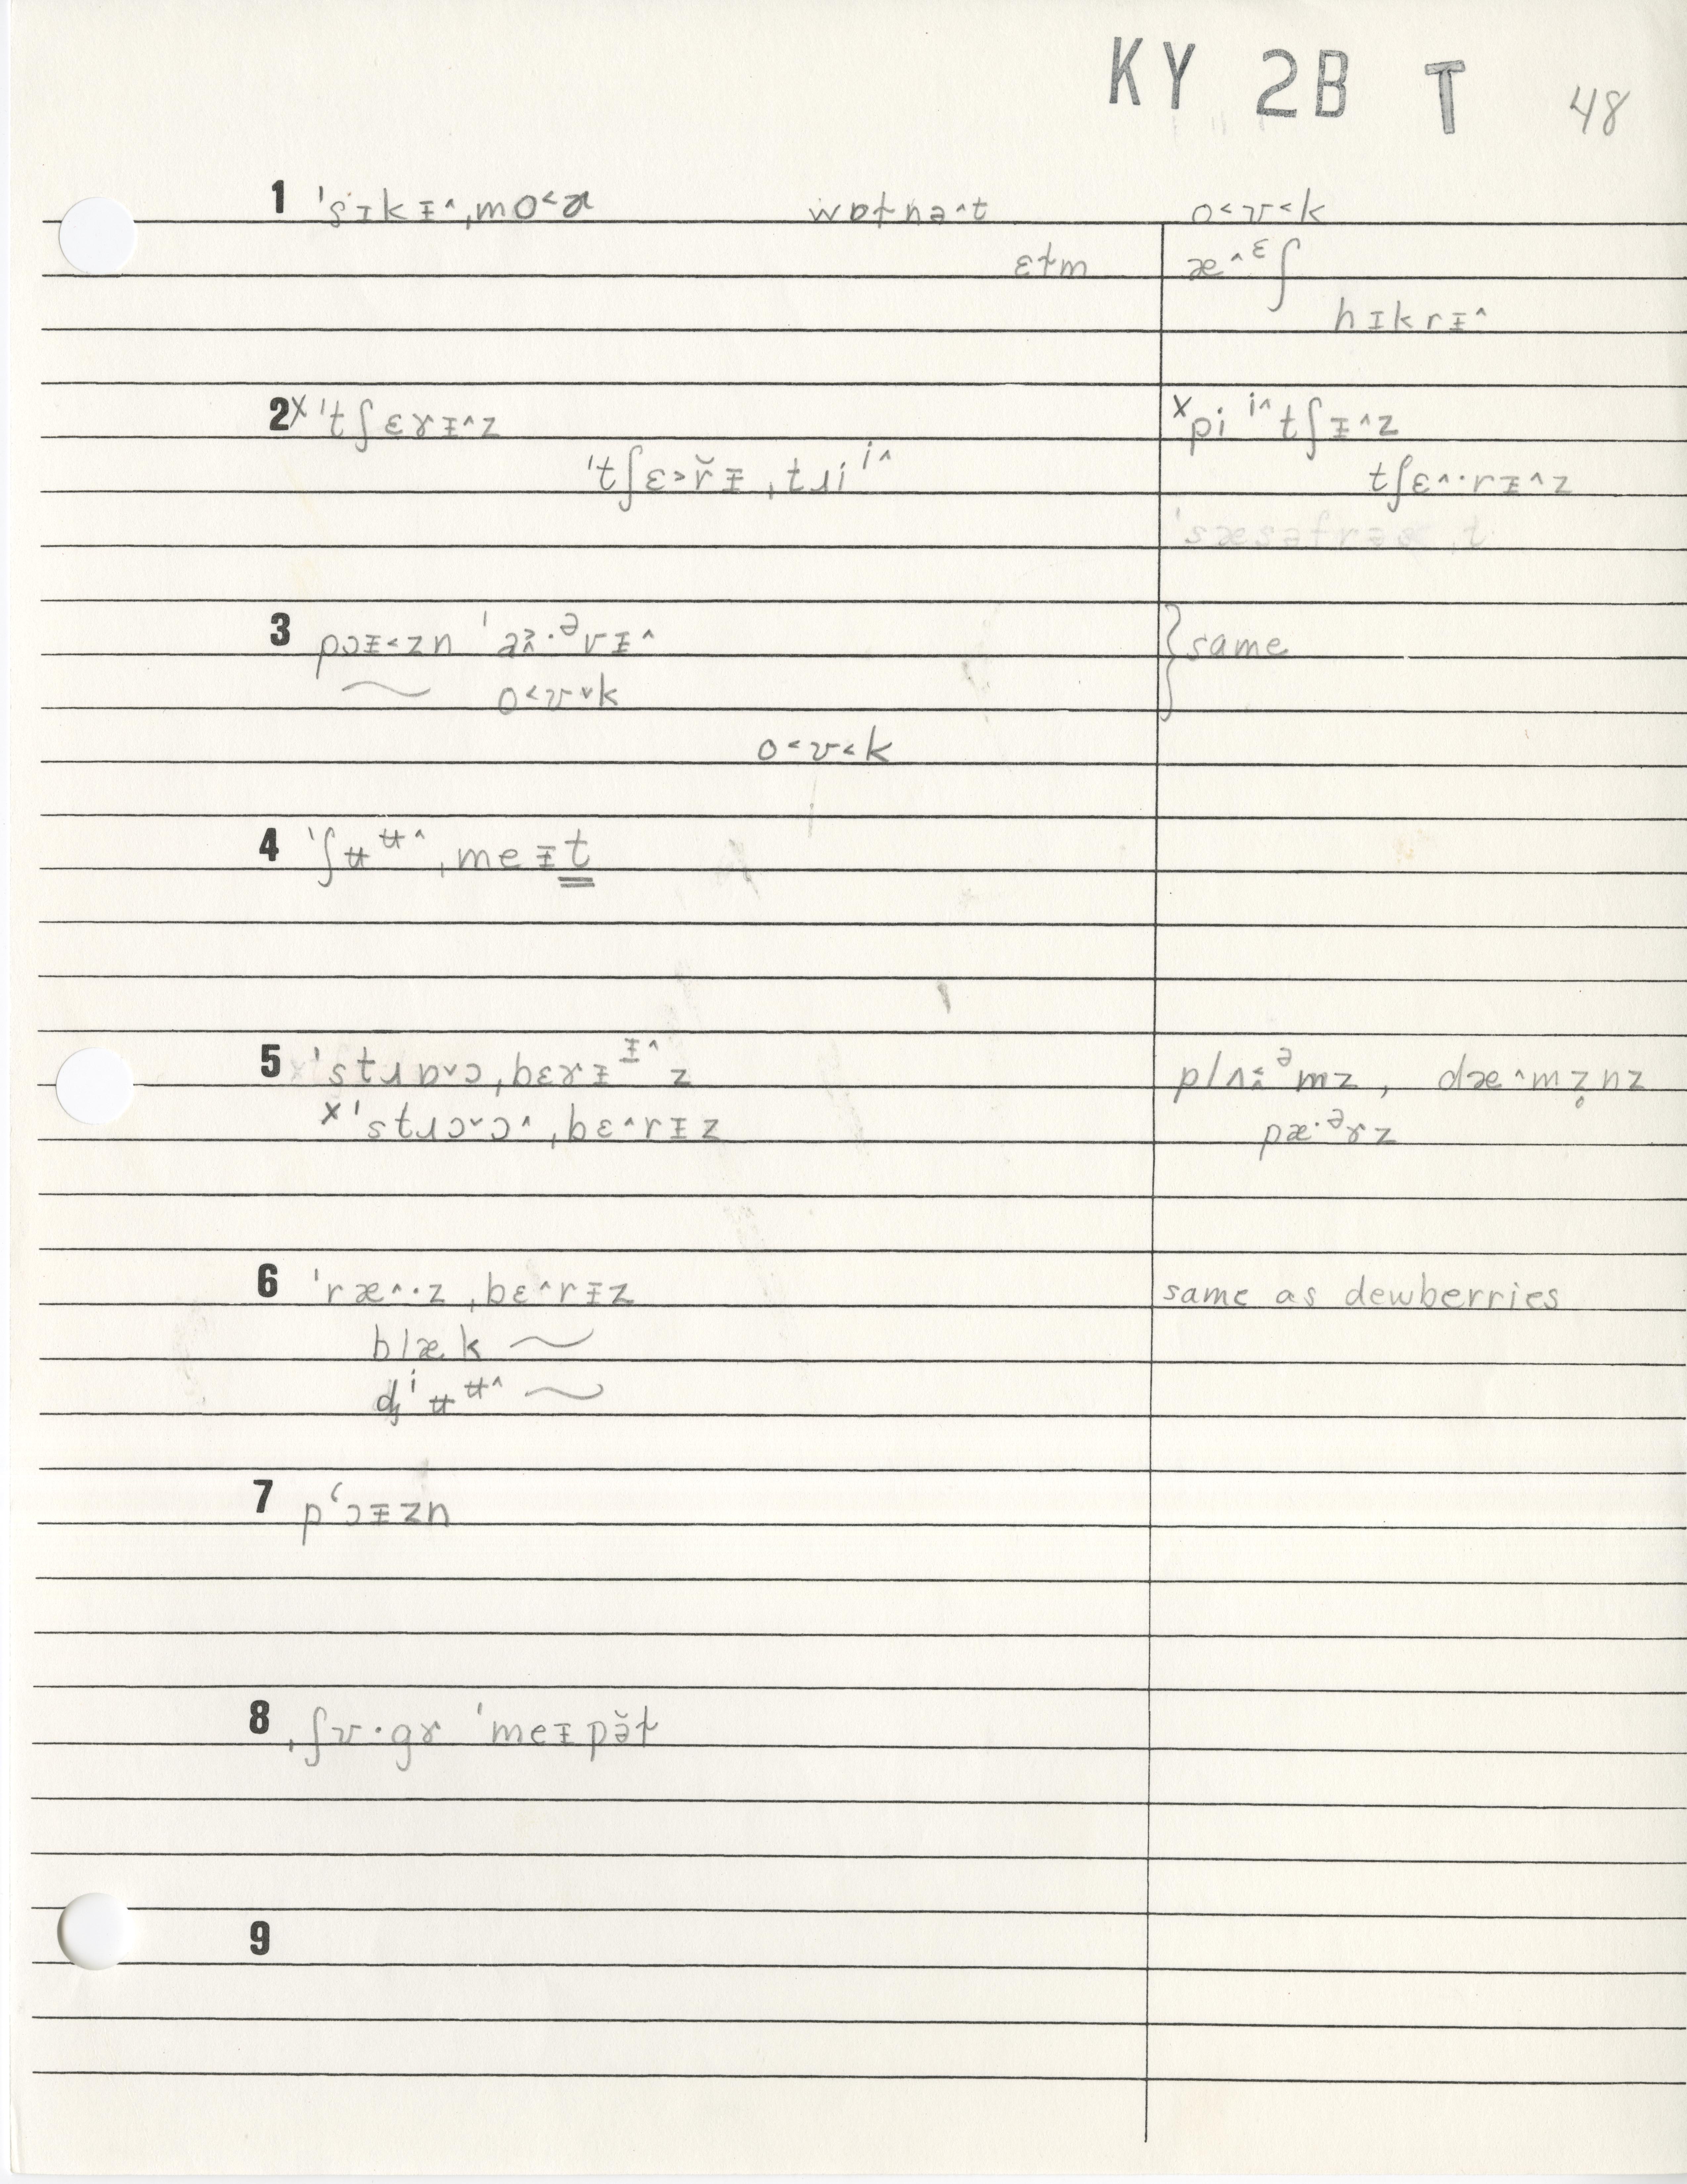 KY 2B T 48
1 ˈsɪkɪ̵˄ˌmo˂ɚ wɒɫnə˄t o˂ʊ˂k
ɛɫm æ˄ᵋʃ
hɪkrɪ̵˄
2 x ˈtʃɛɤɪ̵˄z x pi ⁱ˄tʃɪ̵˄z
ˈtʃɛ˃r̆ɪ̵ˌtɹiⁱ˄ tʃɛ˄·rɪ̵˄z
3 pɔɪ̵˂zn }same
~ o˂ʊ˅k
o˂ʊ˂k
4 ˈʃʉᵾ˄ˌmeɪ̵t
5 ˈstɹɒ˅ɔˌbɛɤɪ̵ ɪ̵˄z plʌ̰ᵊmz, dæ˄mz̥nz
x ˈstɹɔ˅ɔ˄ˌbɛ˄rɪ̵z pæ·ᵊɤz
6 ˈræ˄·zˌbɛ˄rɪ̵z same as dewberries
blæk ~
dⁱʉᵾ˄ ~
7 pʻɔɪ̵zn
8 ˌʃʊ·gɤ ˈmeɪ̵pə̆ɫ
9